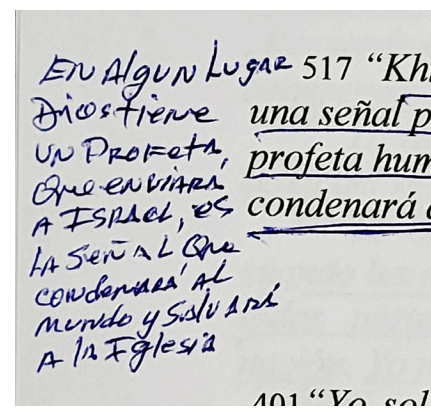 EN AlguN Lugar
Dios tiene
UN Profeta,
Que enviara
A ISRAel, es
LA Señal Que
condenará Al
mundo y Salvará
A la Iglesia
517 “Kh
una señal p
profeta hum
condenará
401 “Yo sol